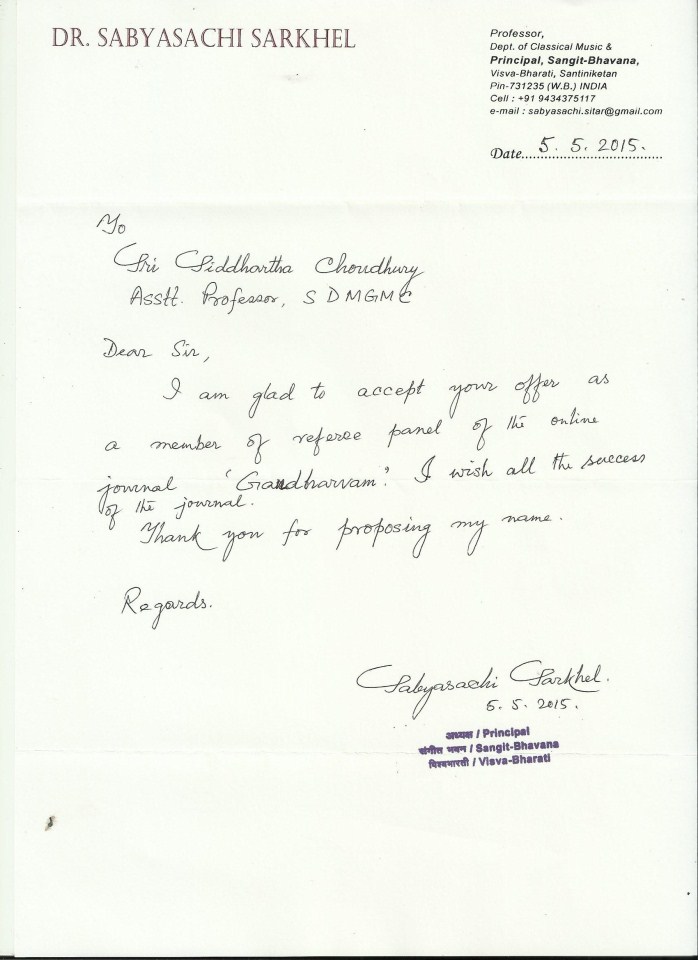 DR. SABYASACHI SARKHEL
Professor,
Dept. of Classical Music &
Principal, Sangit-Bhavana,
Visva-Bharati, Santiniketan
Pin-731235 (W.B.) INDIA
Cell : +91 9434375117
e-mail : sabyasachi.sitar@gmail.com
Date..... 5. 5. 2015.
To
Sri Siddhartha Choudhury
Asstt. Professor, SDMGMC
Dear Sir,
I am glad to accept your offer as
a member of referee panel of the online
journal 'Gandharvam'. I wish all the success
of the journal.
Thank you for proposing my name.
Regards.
Sabyasachi Sarkhel.
5. 5. 2015.
अध्यक्ष / Principal
संगीत भवन / Sangit-Bhavana
विश्वभारती / Visva-Bharati